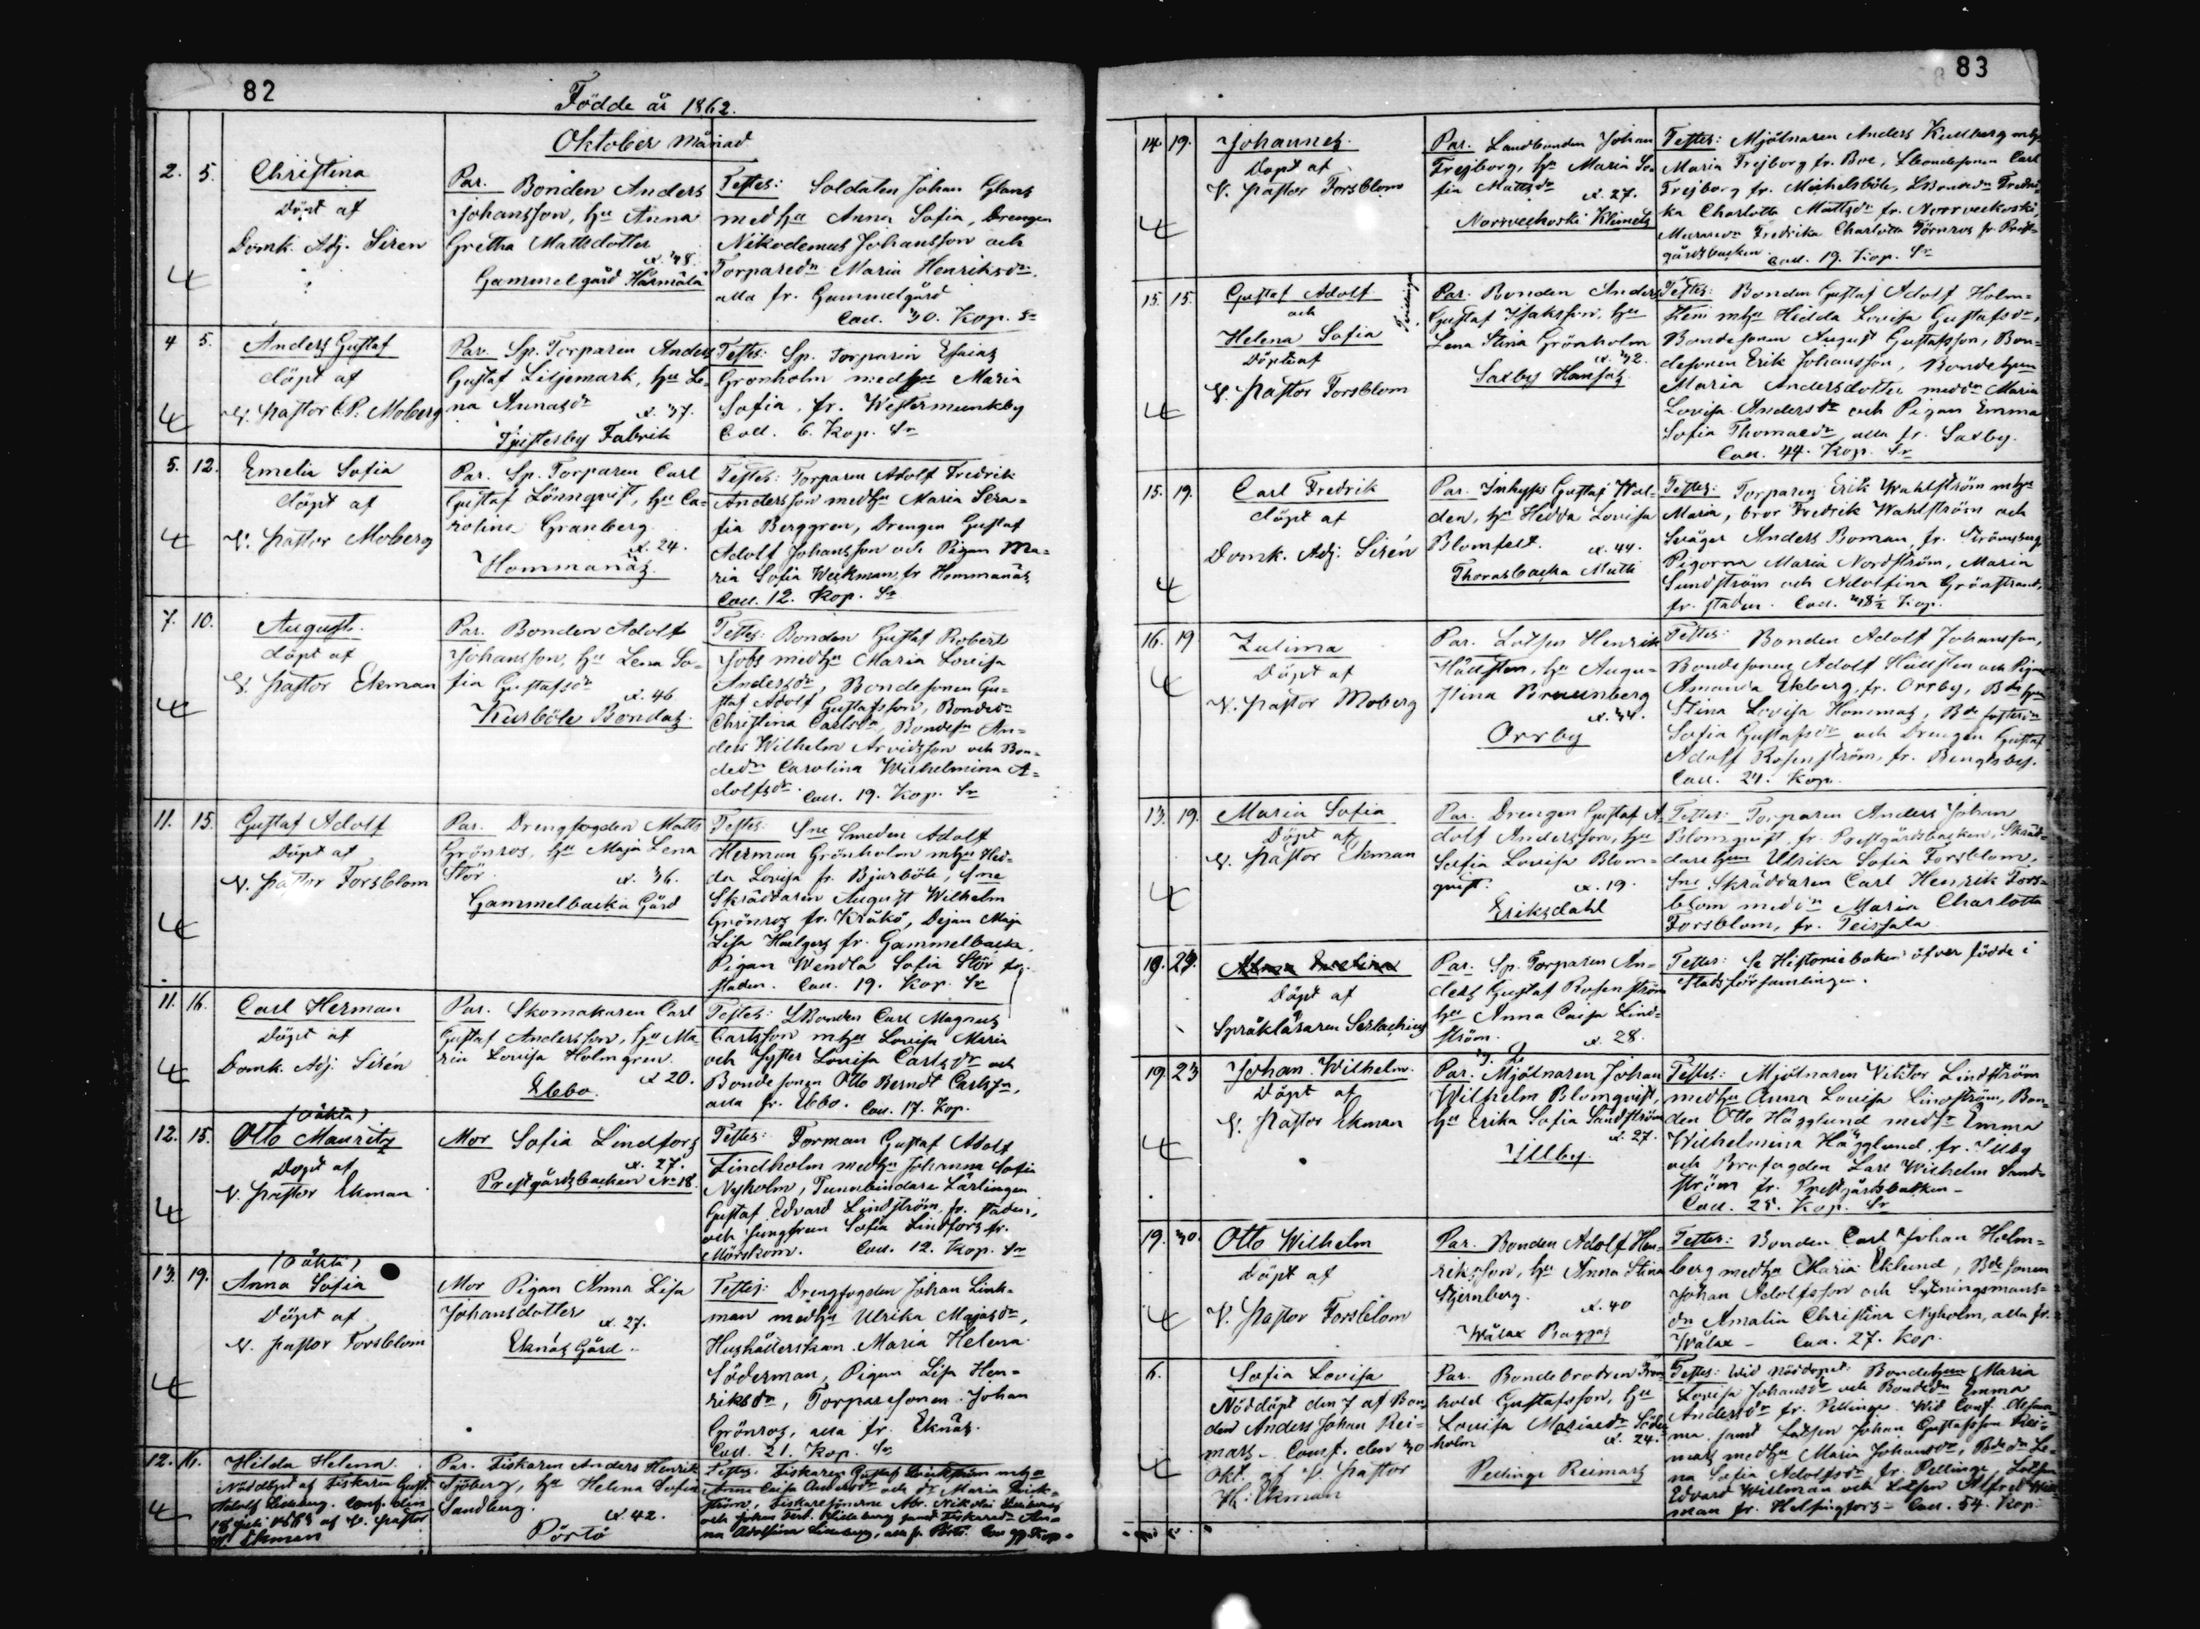 82
Födde år 1862.
Oktober Månad
2. 5. Christina
Döpt af
Domk. Adj. Sirén
Par. Bonden Anders
Johansson, hu Anna
Gretha Mattsdotter
æ. 38.
Gammelgård Härmälä
Testes: Soldaten Johan Glans
med hu Anna Sofia, Drengen
Nikodemus Johansson och
Torparedr Maria Henriksdr
alla fr. Gammelgård
Coll. 30. Kop. Sr
4 5. Anders Gustaf
döpt af
V. Pastor C.P. Moberg
Par. Sp. Torparen Anders
Gustaf Liljemark, hu Le-
na Annasdr
æ. 37.
Tjusterby Fabrik
Testes: Sp. Torparen Esaias
Grönholm med hu Maria
Sofia, fr. Westermunkby
Coll. 6. Kop. Sr
5. 12. Emelia Sofia
döpt af
V. Pastor Moberg
Par. Sp. Torparen Carl
Gustaf Lönnqvist, hu Ca-
rolina Granberg.
æ. 24.
Hommanäs.
Testes: Torparen Adolf Fredrik
Andersson med hu Maria Sera-
fia Berggren, Drengen Gustaf
Adolf Johansson och Pigan Ma-
ria Sofia Weckman, fr Hommanäs
Coll. 12. Kop. Sr
7. 10. August.
döpt af
V. Pastor Ekman
Par. Bonden Adolf
Johansson, hu Lena So-
fia Gustafsdr
æ. 46
Kurböle Bondas.
Testes: Bonden Gustaf Robert
Jobs med hu Maria Lovisa
Andersdr, Bondesonen Gu-
staf Adolf Gustafsson, Bondedr
Christina Carlsdr, Bondesn An-
ders Wilhelm Arvidsson och Bon-
dedr Carolina Wilhelmina A-
dolfsdr. Coll. 19. Kop. Sr
11. 15. Gustaf Adolf
Döpt af
V. Pastor Forsblom
Par. Drengfogden Matts
Grönros, hu Maja Lena
Stör.
æ. 36.
Gammelbacka Gård
Testes: Sne Smeden Adolf
Herman Grönholm mhu Hed-
da Lovisa fr. Bjurböle, Sne
Skräddaren August Wilhelm
Grönros fr. Kråkö, Dejan Maja
Lisa Haelgers fr. Gammelbacka,
Pigan Wendla Sofia Stör fr.
staden. Coll. 19. Kop. Sr
11. 16. Carl Herman
Döpt af
Domk. Adj. Sirén
Par. Skomakaren Carl
Gustaf Andersson, hu Ma-
ria Lovisa Holmgren.
æ 20.
Ebbo.
Testes: LBonden Carl Magnus
Carlsson mhu Lovisa Maria
och Syster Lovisa Carlsdr och
Bondesonen Otto Berndt Carlssn,
alla fr. Ebbo. Coll. 17. Kop.
(Oäkta)
12. 15. Otto Mauritz
Döpt af
V. Pastor Ekman
Mor Sofia Lindfors
æ. 27.
Prestgårdsbacken No 18.
Testes: Forman Gustaf Adolf
Lindholm med hu Johanna Sofia
Nyholm, Tunnbindare Lärlingen
Gustaf Edvard Lindström, fr. staden,
och Jungfrun Sofia Lindfors fr.
Mörskom. Coll. 12. Kop. Sr
(Oäkta)
13. 19. Anna Sofia
Döpt af
V. Pastor Forsblom
Mor Pigan Anna Lisa
Johansdotter
æ. 27.
Eknäs Gård.
Testes: Drengfogden Johan Link-
man med hu Ulrika Majasdr,
Hushållerskan Maria Helena
Söderman, Pigan Lisa Hen-
riksdr, Torparesonen Johan
Grönros, alla fr. Eknäs.
Coll. 21. Kop. Sr
12. 16. Hilda Helena
Nöddöpt af Fiskaren Gust.
Adolf
18 Juli 1863 af V. Pastor
Ekman
Par. Fiskaren Anders Henrik
Sjöberg, hu Helena Sofia
Sandberg.
æ. 42.
Pörtö
Testes: Fiskaren Gustaf mhu
Anna Caisa Andersdr och dr Maria
Fiskaresönerne Abr. Nikolai
na Adolfina alla fr. Pörtö.
83
14. 19. Johannes.
Döpt af
V. Pastor Forsblom
Par. Landbonden Johan
Frejborg, hu Maria So-
fia Mattsdr
æ. 27.
Norrveckoski Klimets
Testes: Mjölnaren Anders Kullberg mhu
Maria Frejborg fr. Boe, Lbondesonen Carl
Frejborg fr. Michelsböle, LBondedr Fredri-
ka Charlotta Mattsdr fr. Norrveckoski,
Muraredr Fredrika Charlotta Törnros fr. Prest-
gårdsbacken. Coll. 19. Kop. Sr
15. 15. Gustaf Adolf
och
Helena Sofia
Tvillingar
Döpte af
V. Pastor Forsblom
Par. Bonden Anders
Gustaf Isaksson, hu
Lena Stina Grönholm
æ. 32.
Saxby Hansas
Testes: Bonden Gustaf Adolf Holm-
sten mhu Hedda Lovisa Gustafsdr,
Bondesonen August Gustafsson, Bon-
desonen Erik Johansson, Bondehun
Maria Andersdotter med dr Maria
Lovisa Andersdr och Pigan Emma
Sofia Thomasdr alla fr. Saxby.
Coll. 44. Kop. Sr
15. 19. Carl Fredrik
döpt af
Domk. Adj. Sirén
Par. Inhyss Gustaf Wal-
den, hu Hedda Lovisa
Blomfelt. æ. 44.
Thorasbacka Matts
Testes: Torparen Erik Wahlström mhu
Maria, bror Fredrik Wahlström och
Svåger Anders Boman, fr. Strömsberg
Pigorna Maria Nordström, Maria
Sundström och Adolfina Grönstrand,
fr. staden. Coll. 38½ Kop.
16. 19 Zulima
Döpt af
V. Pastor Moberg
Par. Lotsen Henrik
Hällsten, hu Augu-
stina Brunnberg
æ. 34.
Orrby
Testes: Bonden Adolf Johansson,
Bondesonen Adolf Hällsten och Pigan
Amanda Ekberg, fr. Orrby, Bdehun
Stina Lovisa Hommas, Bde
Sofia Gustafsdr och Drengen Gustaf
Adolf Rosenström, fr. Bengtsby.
Coll. 24. Kop.
13. 19. Maria Sofia
Döpt af
V. Pastor Ekman
Par. Drengen Gustaf A-
dolf Andersson, hu
Sofia Lovisa Blom-
qvist. æ. 19.
Eriksdahl
Testes: Torparen Anders Johan
Blomqvist fr. Prestgårdsbacken, Skräd-
darehun Ulrika Sofia Forsblom,
Sne Skräddaren Carl Henrik Fors-
blom med dr Maria Charlotta
Forsblom, fr. Teissala.
19. 29. Alma Evelina
Döpt af
Språkläraren Serlachius
Par. Sp. Torparen An-
ders Gustaf Rosenström
hu Anna Caisa Lind-
ström. æ. 28.
Testes: Se Historieboken öfver födde i
Stadsförsamlingen.
19. 23 Johan Wilhelm.
Döpt af
V. Pastor Ekman
Par. Mjölnaren Johan
Wilhelm Blomqvist,
hu Erika Sofia Sandström
æ. 27.
Illby.
Testes: Mjölnaren Viktor Lindström
med hu Anna Lovisa Lindström, Bon-
den Otto Hägglund med hu Emma
Wilhelmina Hägglund, fr. Illby
och Brofogden Lars Wilhelm Sand-
ström fr. Prestgårdsbacken –
Coll. 25. Kop. Sr
19. 30. Otto Wilhelm
döpt af
V. Pastor Forsblom
Par. Bonden Adolf Hen-
riksson, hu Anna Stina
Stjernberg.
æ. 40
Wålax Baggas
Testes: Bonden Carl Johan Holm-
berg med hu Maria Eklund, Bdesonen
Johan Adolfsson och Sytningsmans-
dr Amalia Christina Nyholm, alla fr.
Wålax – Coll. 27. Kop.
6. Sofia Lovisa
Nöddöpt den 7 af Bon-
den Anders Johan Rei-
mars. Conf. den 30
Okt. af V. Pastor
Ekman
Par. Bondebrodren From-
hold Gustafsson, hu
Lovisa Mariasdr Söder-
holm æ. 24.
Pellinge Reimars
Testes: Wid Nöddopet: Bondehun Maria
Lovisa Johansdr och Bondedr Emma
Andersdr fr. Pellinge. Wid Conf. desam-
ma samt Lotsen Johan Gustafsson Rei-
mars med hu Maria Johansdr, Bdedr Le-
na Sofia Adolfsdr fr. Pellinge, Lotsen
Edvard Willman och Lotsen Alfred Will-
man fr. Helsingfors – Coll. 54. Kop.